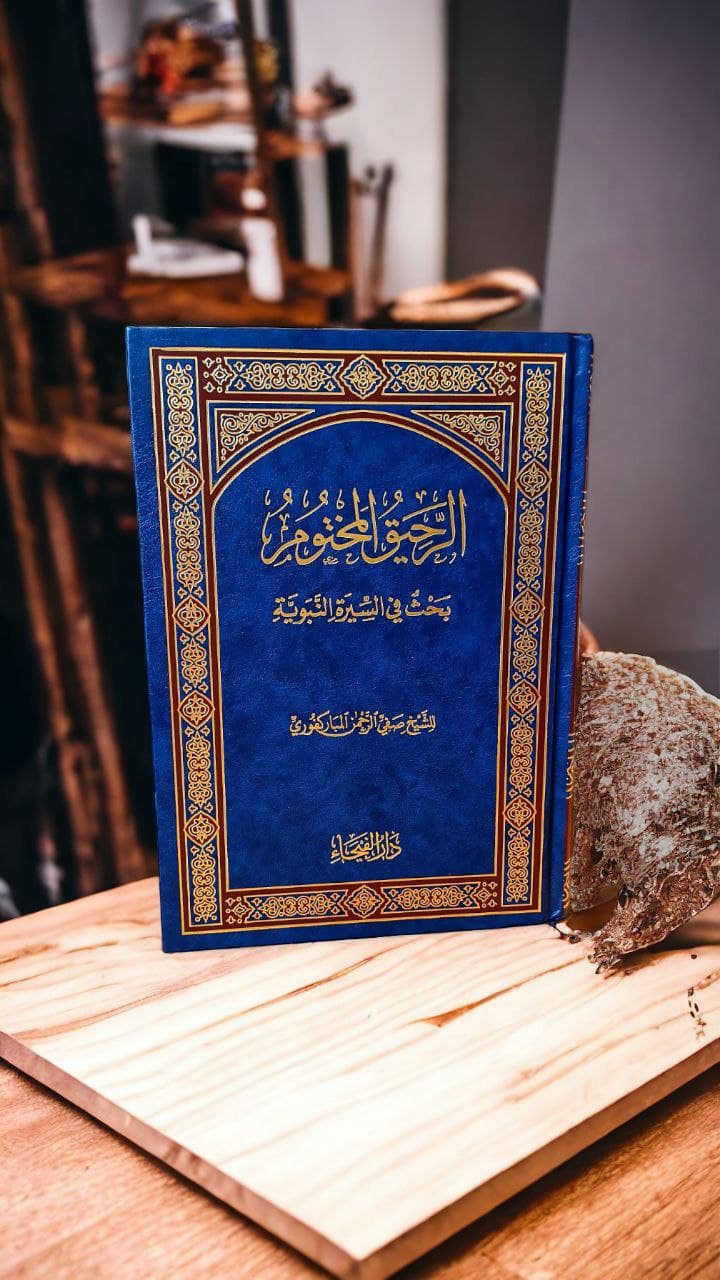 الرَّحِيقُ المَخْتُومُ
بَحْثٌ فِي السِّيْرَةِ النَّبَوِيَّةِ
للشَّيْخ صَفِيِّ الرَّحْمٰن المباركفوري
دَارُ الفَيْحَاءِ